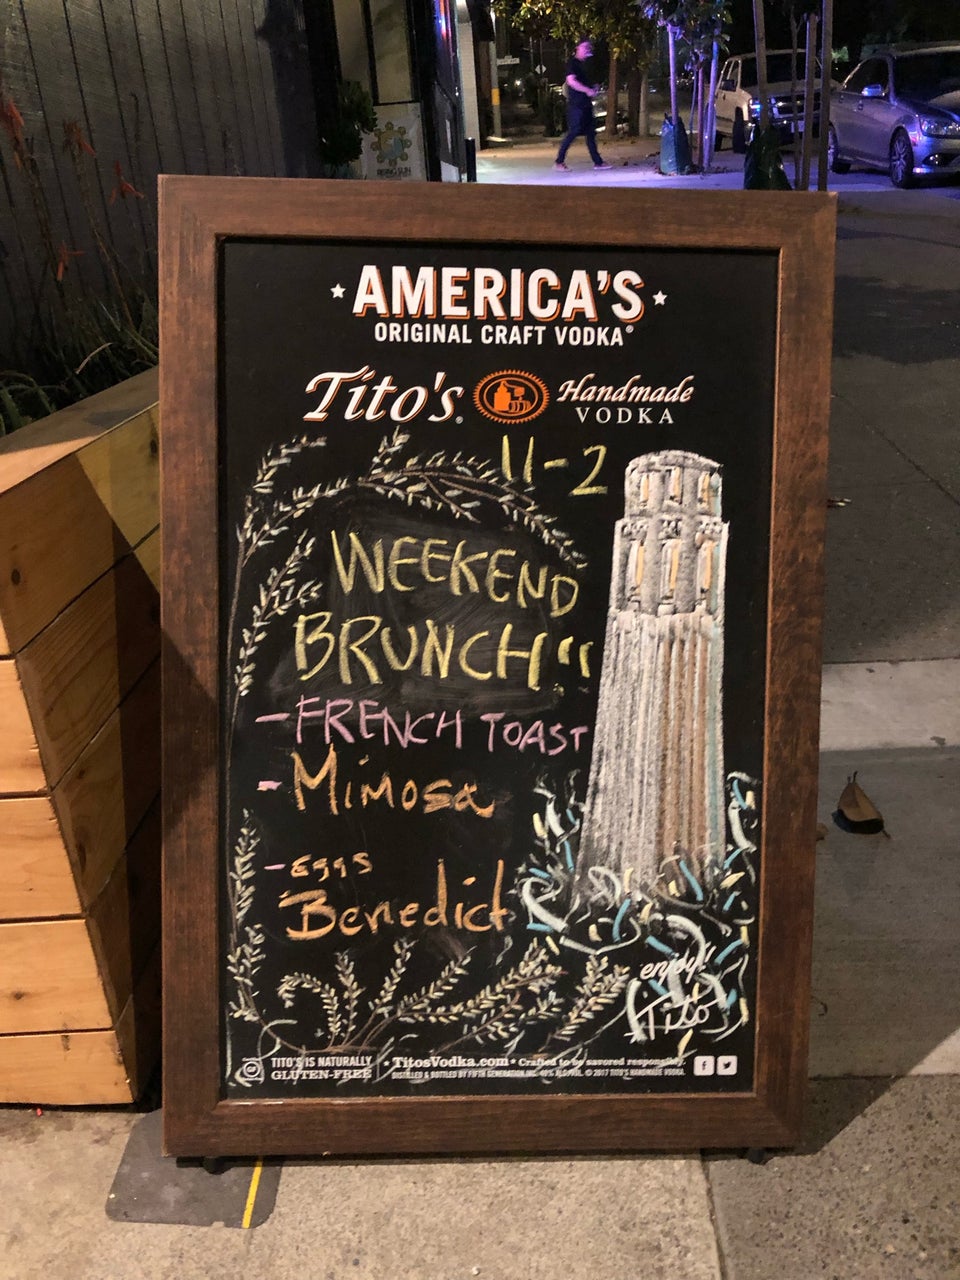 AMERICA'S
ORIGINAL CRAFT VODKA®
Tito's® Handmade
VODKA
11-2
WEEKEND
BRUNCH!!
- FRENCH TOAST
- Mimosa
- EggS
Benedict
enjoy!
Tito
TITO'S IS NATURALLY
GLUTEN-FREE
• TitosVodka.com • Crafted to be savored responsibly.
DISTILLED & BOTTLED BY FIFTH GENERATION INC. 40% ALC./VOL. © 2017 TITO'S HANDMADE VODKA.
RISING SUN